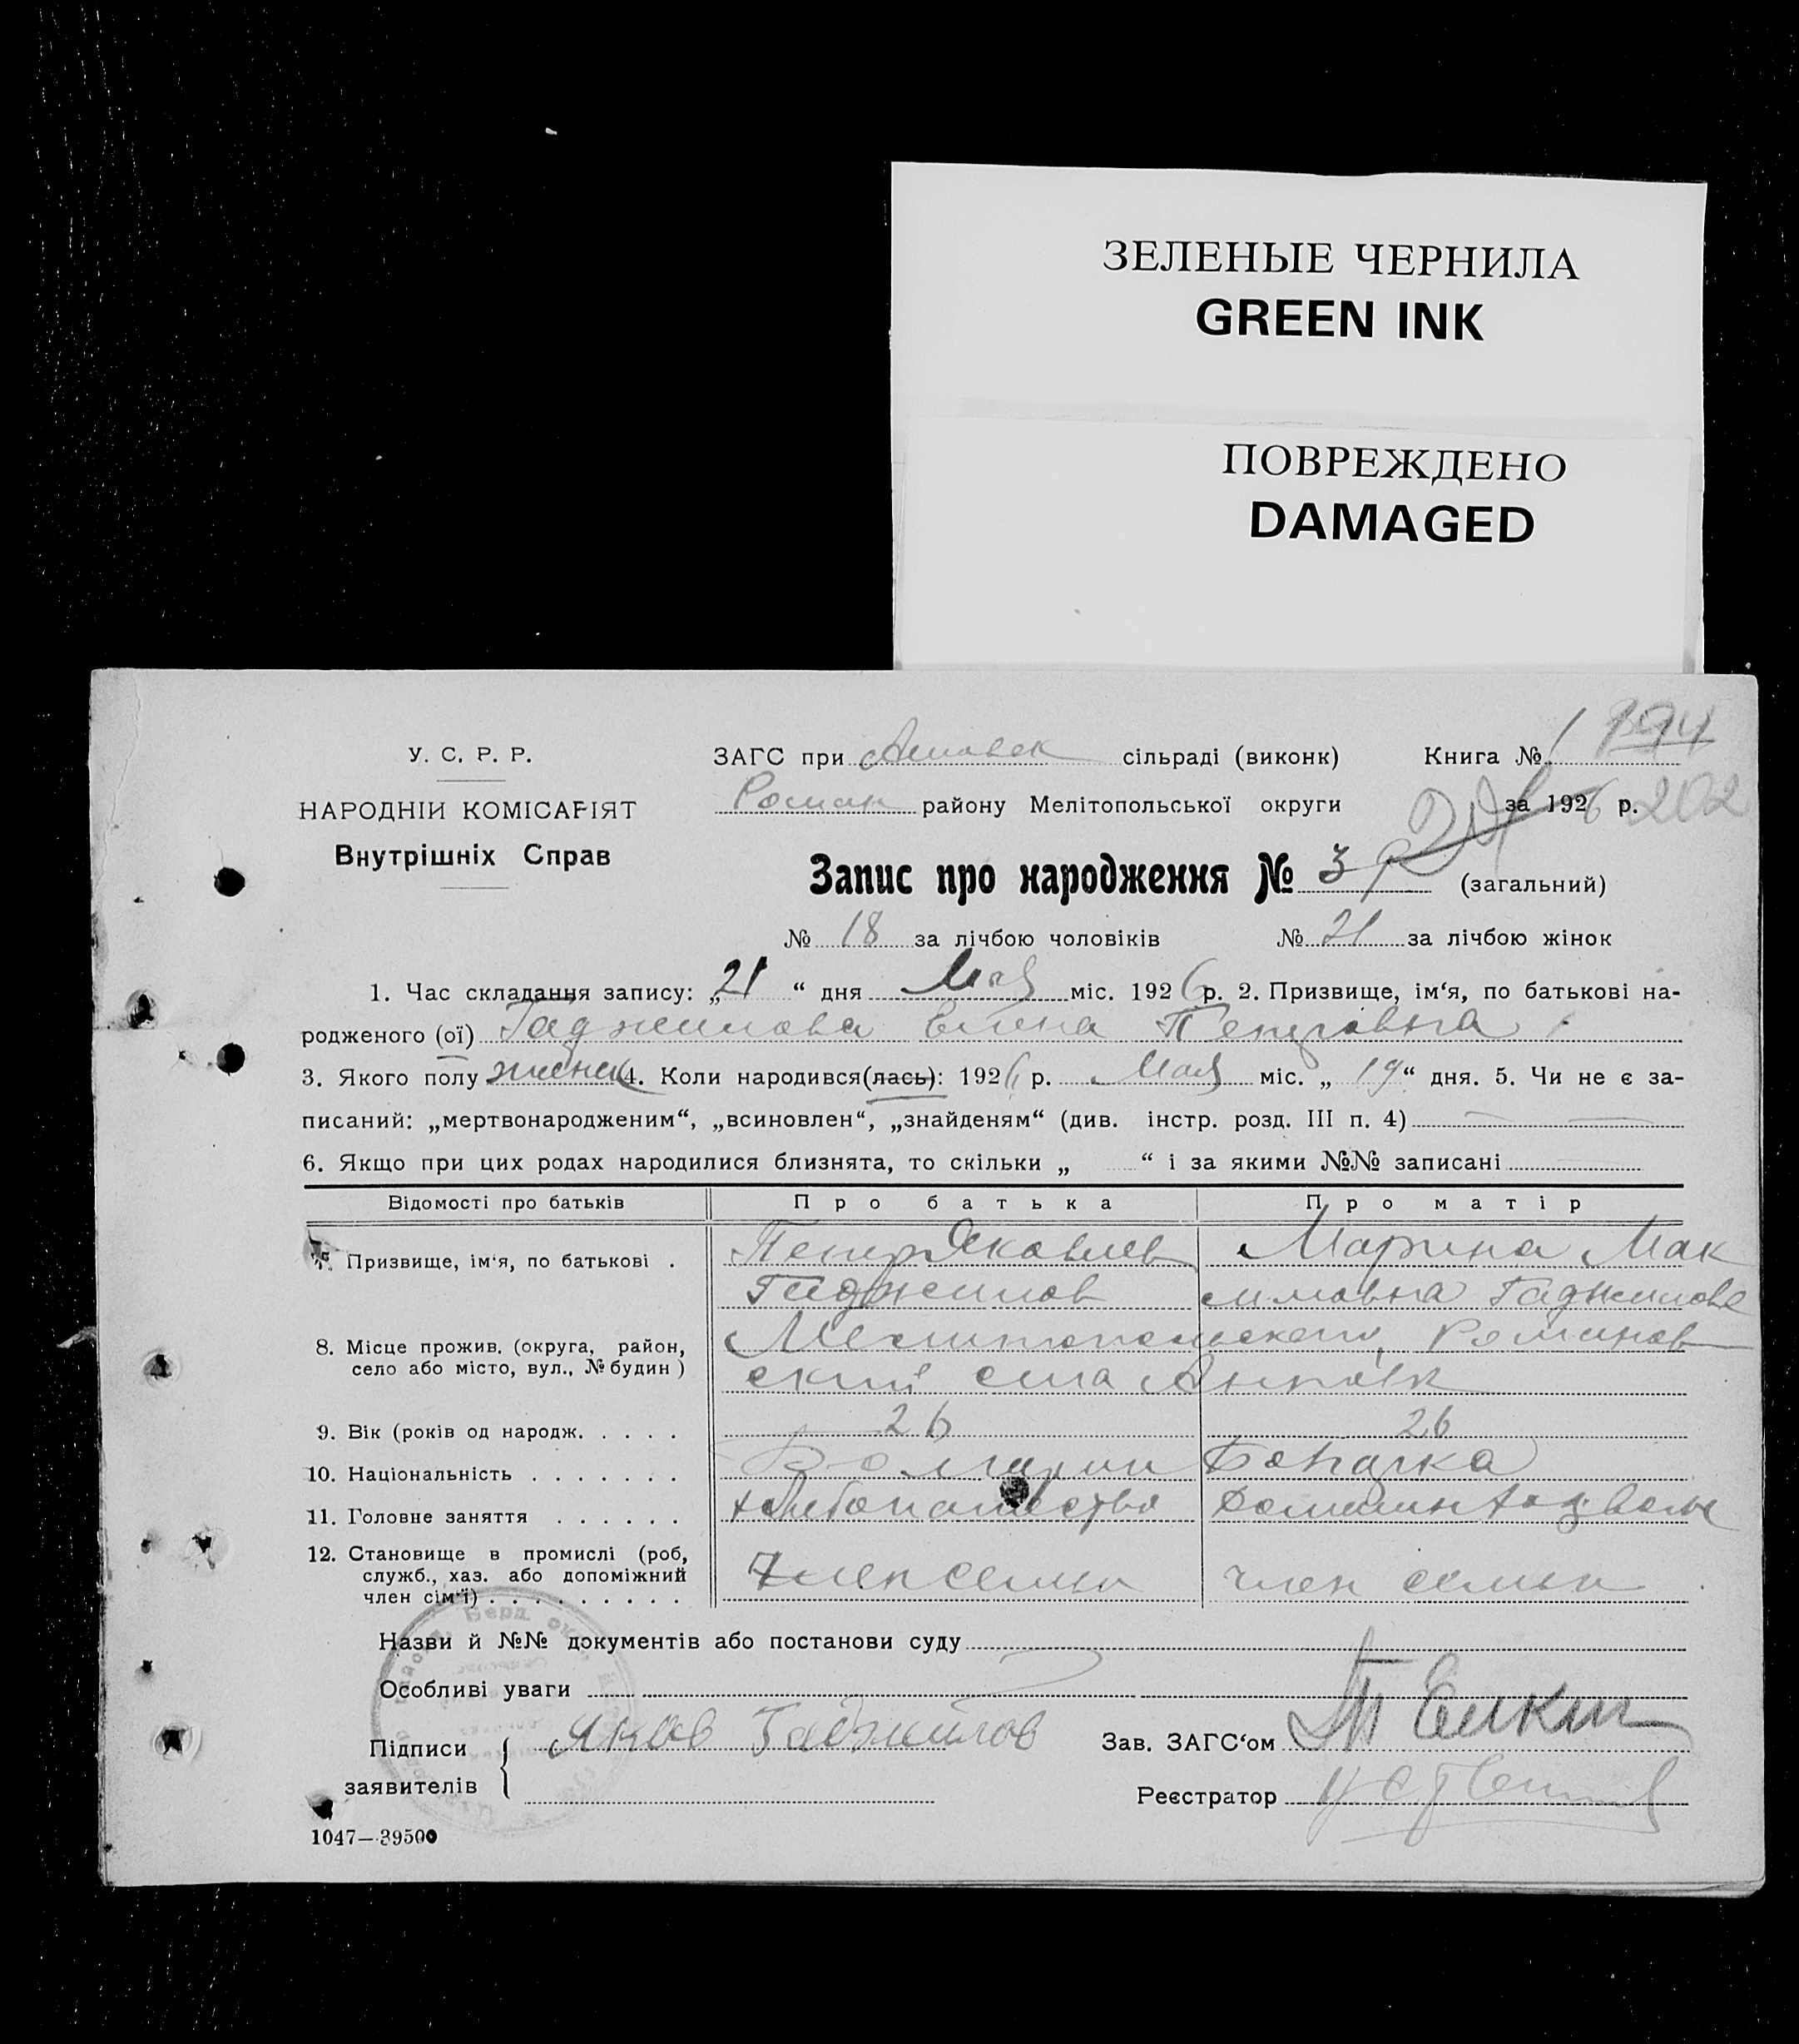 ЗЕЛЕНЫЕ ЧЕРНИЛА
GREEN INK
ПОВРЕЖДЕНО
DAMAGED
У. С. Р. Р.
НАРОДНІЙ КОМІСАРІЯТ
Внутрішніх Справ
ЗАГС при сільраді (виконк) Книга № 1
Роман району Мелітопольської округи за 1926 р. 202
Запис про народження № 39 (загальний)
№ 18 за лічбою чоловіків № 21 за лічбою жінок
1. Час складання запису: „21“ дня Мая міс. 1926 р. 2. Призвище, ім‘я, по батькові на-
родженого (ої) Гаджилова Елена Петровна
3. Якого полу женск 4. Коли народився(лась): 1926 р. Мая міс. „19“ дня. 5. Чи не є за-
писаний: „мертвонародженим“, „всиновлен“, „знайденям“ (див. інстр. розд. III п. 4)
6. Якщо при цих родах народилися близнята, то скільки „ “ і за якими №№ записані
Відомості про батьків Про батька Про матір
7. Призвище, ім‘я, по батькові . Петр Яковлев Марина Мак
Гаджилов симовна Гаджилова
8. Місце прожив. (округа, район, Мелитопольского, Романов
село або місто, вул., № будин) ский села
9. Вік (років од народж. . . . . 26 26
10. Національність . . . . . . . Болгарин Болгарка
11. Головне заняття . . . . . . хлебопашество домашн
12. Становище в промислі (роб,
служб., хаз. або допоміжний Член семьи член семьи
член сім‘ї) . . . . . . . . .
Назви й №№ документів або постанови суду
Особливі уваги
Підписи Яков Гаджилов Зав. ЗАГС‘ом
заявителів
Реєстратор
1047—39500